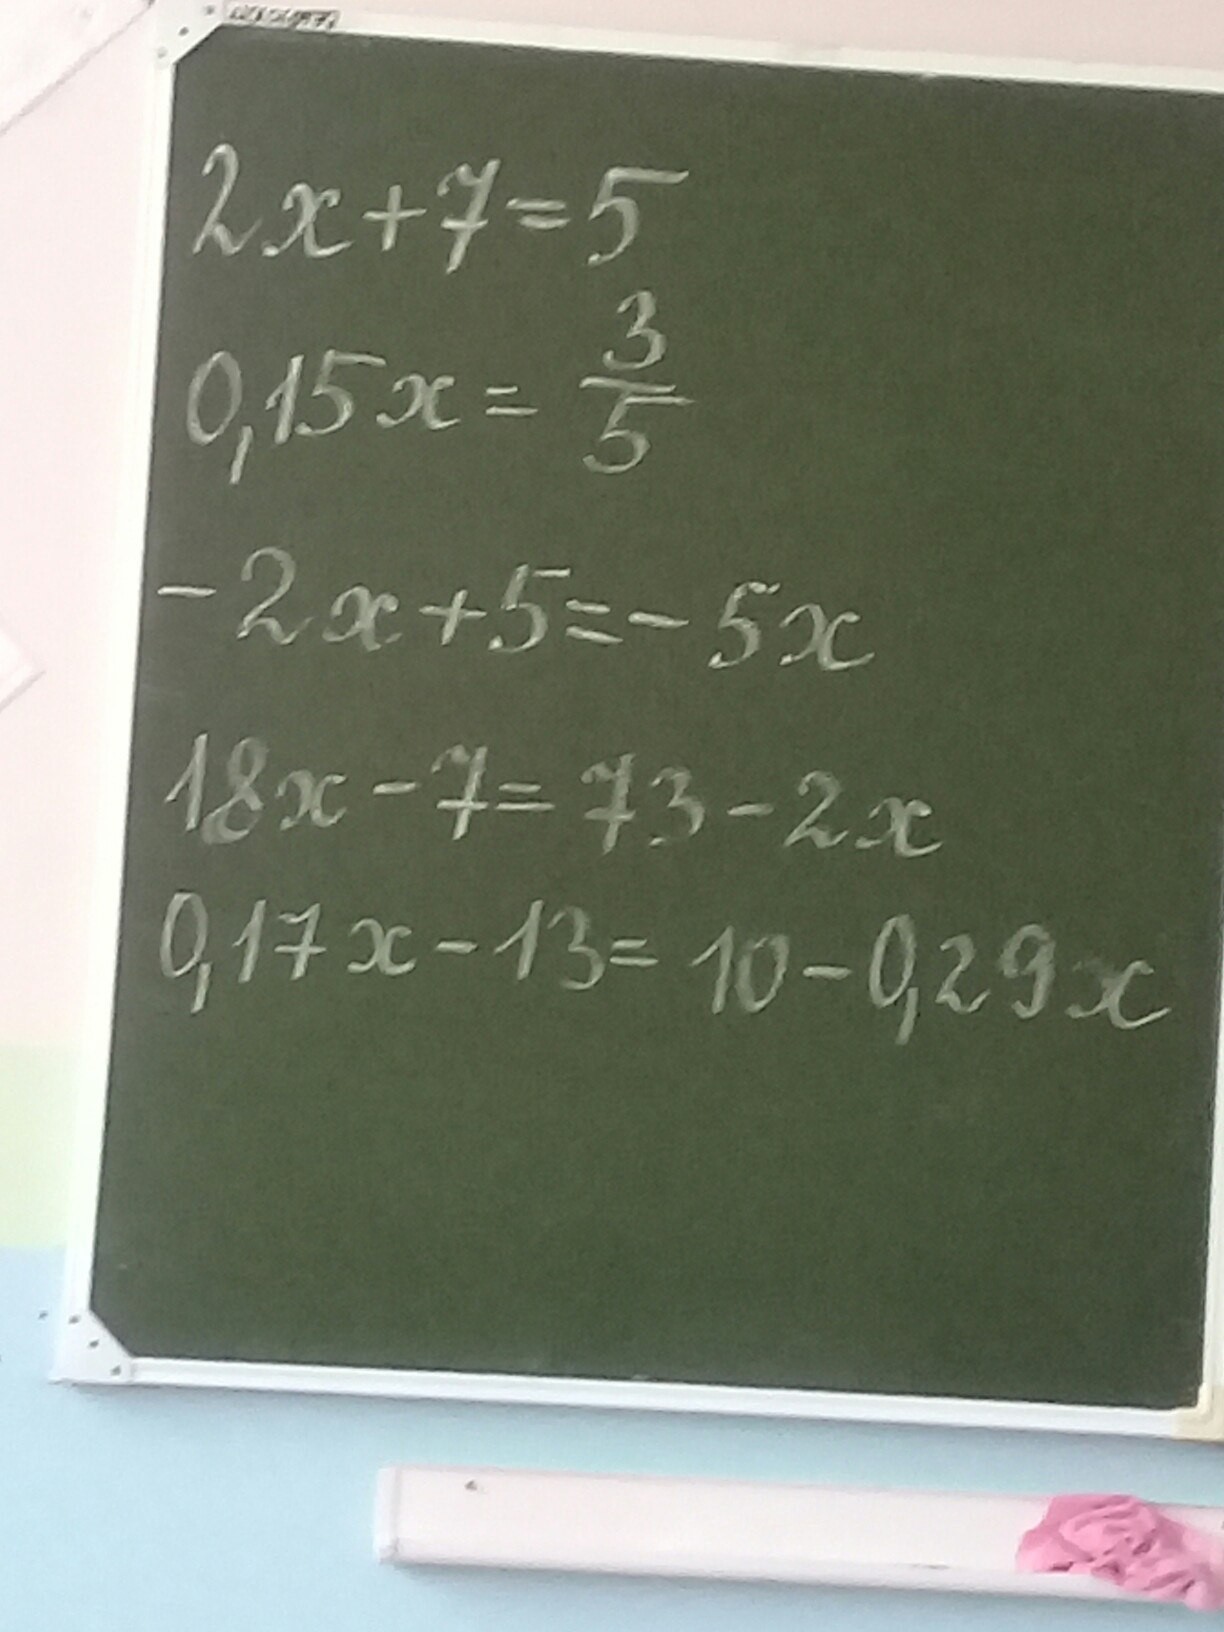 2x+7=5
0,15x = 3/5
-2x+5=-5x
18x-7=73-2x
0,17x-13=10-0,29x